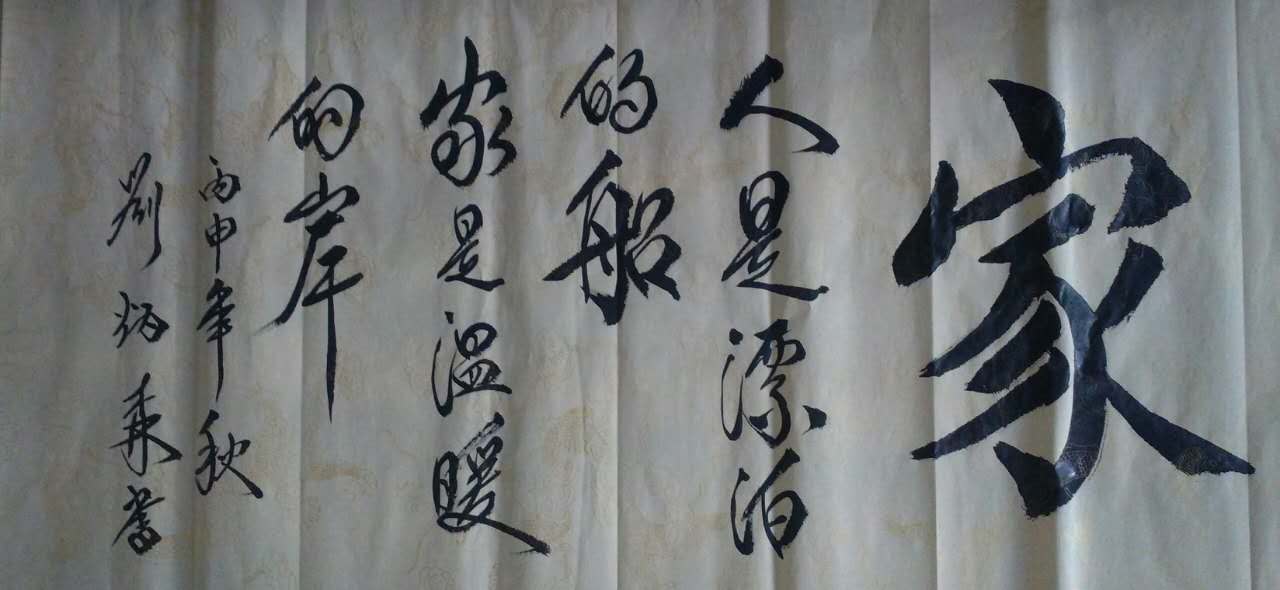 家
人是漂泊
的船
家是温暖
的岸
丙申年秋
劉炳森書